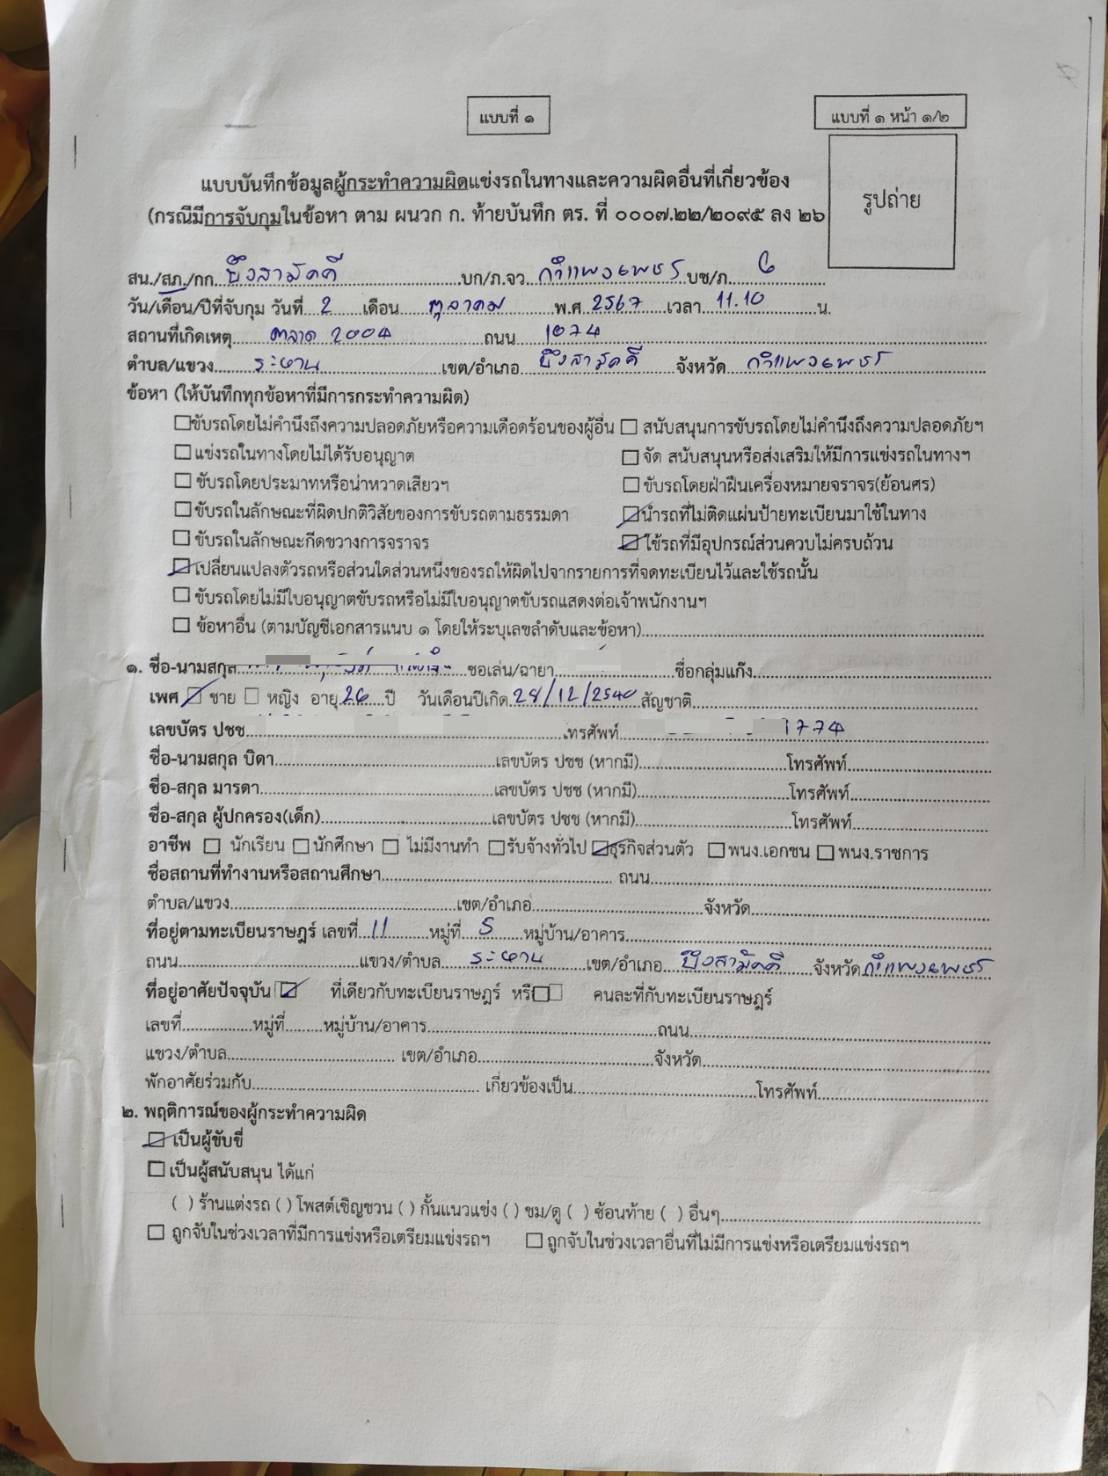 แบบที่ ๑
แบบที่ ๑ หน้า ๑/๒
แบบบันทึกข้อมูลผู้กระทำความผิดแข่งรถในทางและความผิดอื่นที่เกี่ยวข้อง
(กรณีมีการจับกุมในข้อหา ตาม ผนวก ก. ท้ายบันทึก ตร. ที่ ๐๐๐๗.๒๒/๒๐๙๕ ลง ๒๖
รูปถ่าย
สน./สภ./กก. บึงสามัคคี บก/ภ.จว. กำแพงเพชร บช/ภ. 6
วัน/เดือน/ปีที่จับกุม วันที่ 2 เดือน ตุลาคม พ.ศ. 2567 เวลา 11.10 น.
สถานที่เกิดเหตุ ตลาด 2004 ถนน 1074
ตำบล/แขวง ระหาน เขต/อำเภอ บึงสามัคคี จังหวัด กำแพงเพชร
ข้อหา (ให้บันทึกทุกข้อหาที่มีการกระทำความผิด)
ขับรถโดยไม่คำนึงถึงความปลอดภัยหรือความเดือดร้อนของผู้อื่น สนับสนุนการขับรถโดยไม่คำนึงถึงความปลอดภัยฯ
แข่งรถในทางโดยไม่ได้รับอนุญาต จัด สนับสนุนหรือส่งเสริมให้มีการแข่งรถในทางฯ
ขับรถโดยประมาทหรือน่าหวาดเสียวฯ ขับรถโดยฝ่าฝืนเครื่องหมายจราจร(ย้อนศร)
ขับรถในลักษณะที่ผิดปกติวิสัยของการขับรถตามธรรมดา นำรถที่ไม่ติดแผ่นป้ายทะเบียนมาใช้ในทาง
ขับรถในลักษณะกีดขวางการจราจร ใช้รถที่มีอุปกรณ์ส่วนควบไม่ครบถ้วน
เปลี่ยนแปลงตัวรถหรือส่วนใดส่วนหนึ่งของรถให้ผิดไปจากรายการที่จดทะเบียนไว้และใช้รถนั้น
ขับรถโดยไม่มีใบอนุญาตขับรถหรือไม่มีใบอนุญาตขับรถแสดงต่อเจ้าพนักงานฯ
ข้อหาอื่น (ตามบัญชีเอกสารแนบ ๑ โดยให้ระบุเลขลำดับและข้อหา)
๑. ชื่อ-นามสกุล ชื่อเล่น/ฉายา ชื่อกลุ่มแก๊ง
เพศ ชาย หญิง อายุ 26 ปี วันเดือนปีเกิด 28/12/2540 สัญชาติ
เลขบัตร ปชช โทรศัพท์ 1774
ชื่อ-นามสกุล บิดา เลขบัตร ปชช (หากมี) โทรศัพท์
ชื่อ-สกุล มารดา เลขบัตร ปชช (หากมี) โทรศัพท์
ชื่อ-สกุล ผู้ปกครอง(เด็ก) เลขบัตร ปชช (หากมี) โทรศัพท์
อาชีพ นักเรียน นักศึกษา ไม่มีงานทำ รับจ้างทั่วไป ธุรกิจส่วนตัว พนง.เอกชน พนง.ราชการ
ชื่อสถานที่ทำงานหรือสถานศึกษา ถนน
ตำบล/แขวง เขต/อำเภอ จังหวัด
ที่อยู่ตามทะเบียนราษฎร์ เลขที่ 11 หมู่ที่ 5 หมู่บ้าน/อาคาร
ถนน แขวง/ตำบล ระหาน เขต/อำเภอ บึงสามัคคี จังหวัด กำแพงเพชร
ที่อยู่อาศัยปัจจุบัน ที่เดียวกับทะเบียนราษฎร์ หรือ คนละที่กับทะเบียนราษฎร์
เลขที่ หมู่ที่ หมู่บ้าน/อาคาร ถนน
แขวง/ตำบล เขต/อำเภอ จังหวัด
พักอาศัยร่วมกับ เกี่ยวข้องเป็น โทรศัพท์
๒. พฤติการณ์ของผู้กระทำความผิด
เป็นผู้ขับขี่
เป็นผู้สนับสนุน ได้แก่
( ) ร้านแต่งรถ ( ) โพสต์เชิญชวน ( ) กั้นแนวแข่ง ( ) ชม/ดู ( ) ซ้อนท้าย ( ) อื่นๆ
ถูกจับในช่วงเวลาที่มีการแข่งหรือเตรียมแข่งรถฯ ถูกจับในช่วงเวลาอื่นที่ไม่มีการแข่งหรือเตรียมแข่งรถฯ